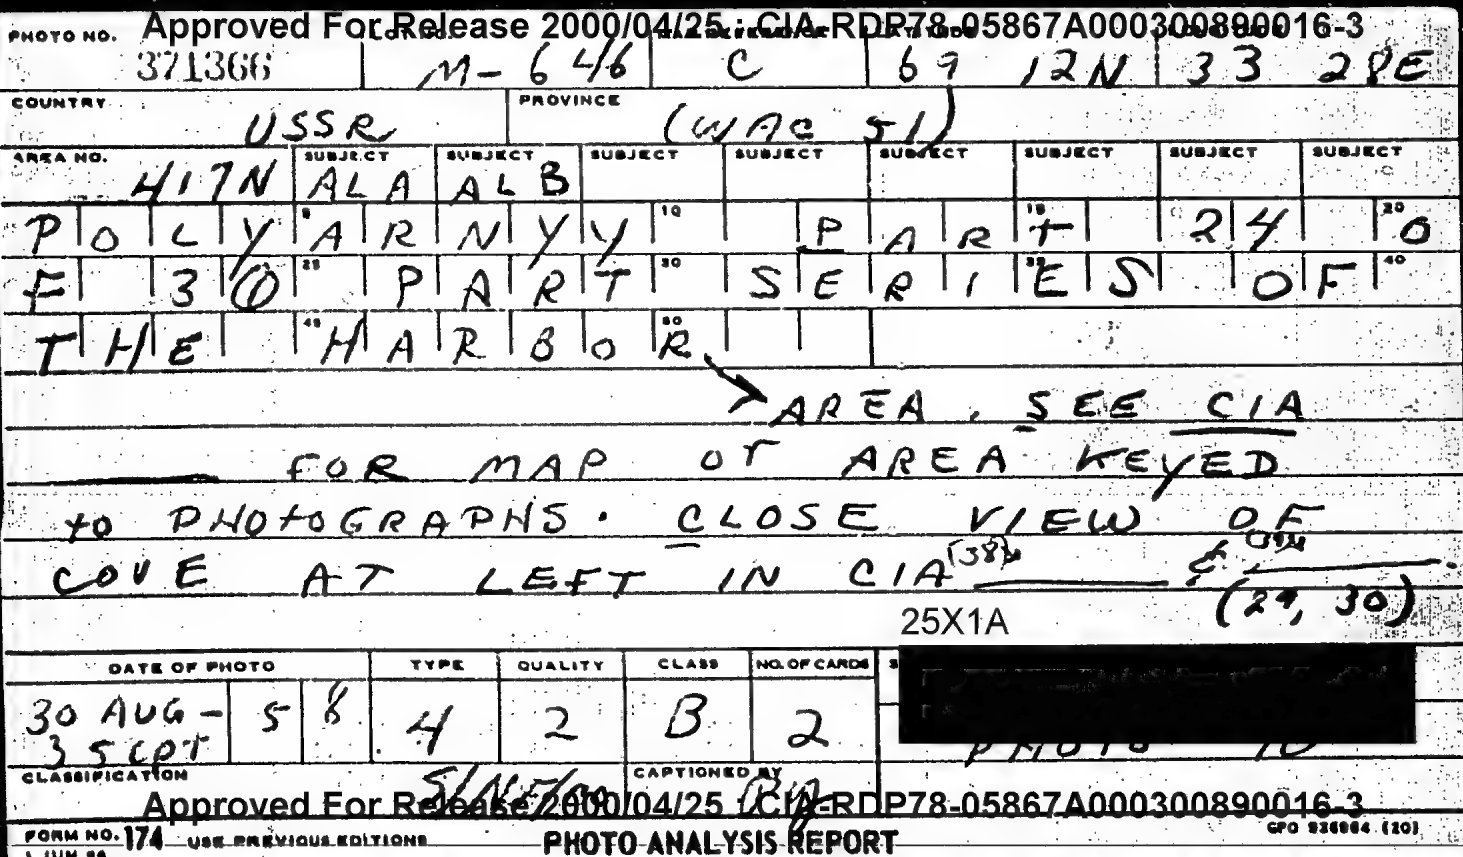 Approved For Release 2000/04/25 : CIA-RDP78-05867A000300890016-3
PHOTO NO.
371366 M-646 C 69 12N 33 28E
COUNTRY PROVINCE
USSR (WAC 51)
AREA NO. SUBJECT SUBJECT SUBJECT SUBJECT SUBJECT SUBJECT SUBJECT SUBJECT
417N ALA ALB
POLYARNYY PART 24 O
F 30 PART SERIES OF
THE HARBOR
AREA. SEE CIA
FOR MAP OF AREA KEYED
to PHOtOGRAPHS. CLOSE VIEW OF
COVE AT LEFT IN CIA &
(29, 30)
25X1A
DATE OF PHOTO TYPE QUALITY CLASS NO. OF CARDS
30 AUG - 58 4 2 B 2
3 SEPT
PHOTO
CLASSIFICATION CAPTIONED BY
Approved For Release 2000/04/25 : CIA-RDP78-05867A000300890016-3
FORM NO. 174 USE PREVIOUS EDITIONS PHOTO ANALYSIS REPORT GPO 936984 (20)